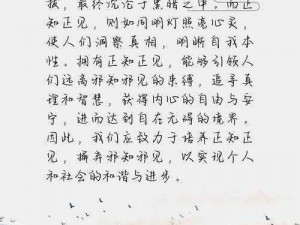 拔，最终沉沦于黑暗之中。而正
知正见，则如同明灯照亮心灵，
使人们洞察真相，明晰自我本
性。拥有正知正见，能够引领人
们远离邪知邪见的束缚，追寻真
理和智慧，获得内心的自由与安
宁，进而达到自在无碍的境界。
因此，我们应致力于培养正知正
见，摒弃邪知邪见，以实现个人
和社会的和谐与进步。